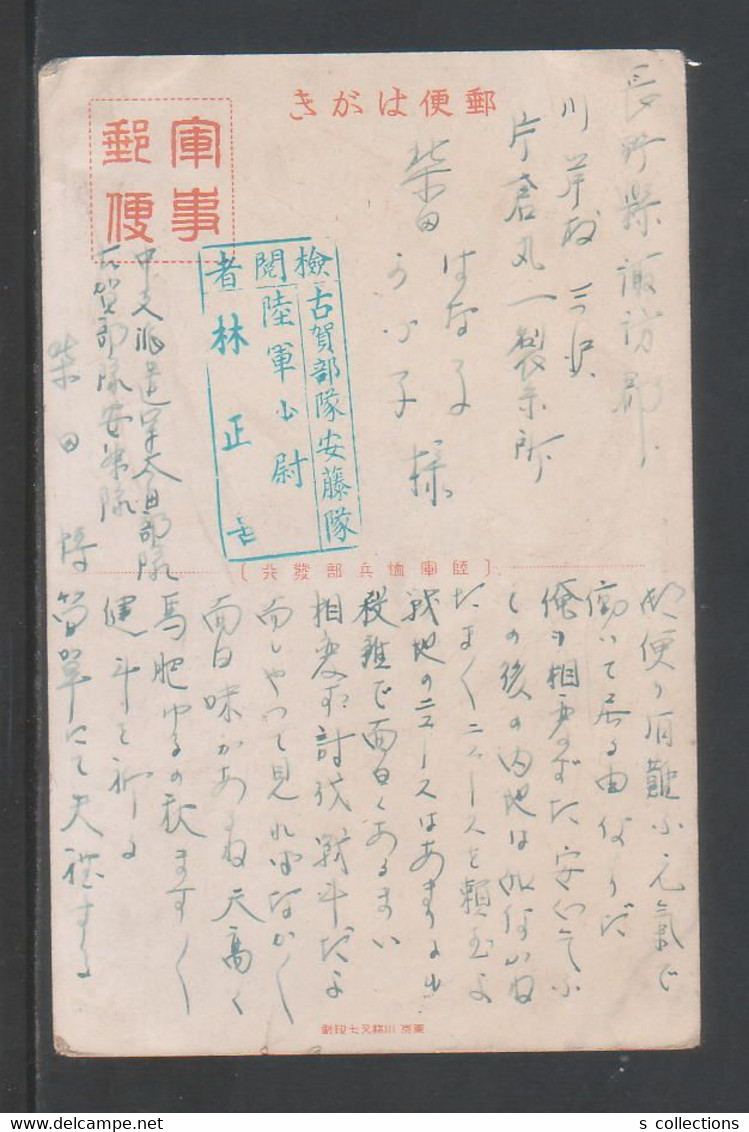 郵便はがき
軍事
郵便
長野縣諏訪郡
川岸村三沢
片倉丸一製糸所
柴田
はな子
様
檢閲者
古賀部隊安藤隊
陸軍少尉
林正
中支派遣軍太田部隊
古賀部隊安藤隊
柴田
(陸軍恤兵部發行)
郵便有難ふ元氣で
働いて居る由なりだ
俺も相変らずだ安心
その後の内地は
ニュースを頼むよ
戦地のニュースはあまり
殺雑で面白くあるまい
相変らず討伐戦斗だよ
而しやつて見ればなかなか
面白味があるね天高く
馬肥ゆるの秋ますます
健斗を祈る
s collections